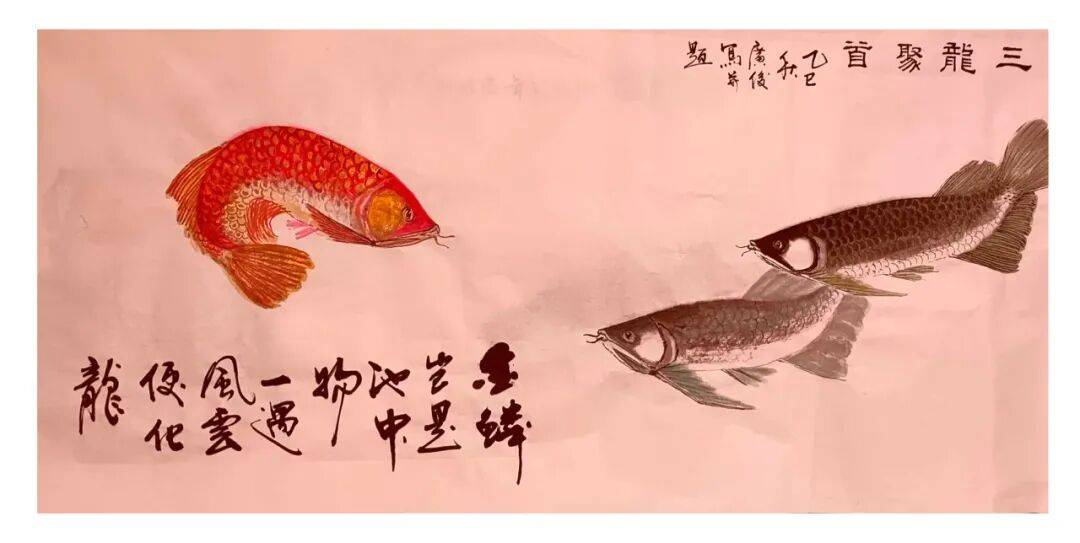 三龍聚首
乙巳
秋
廣俊
寫并
題
金鱗
豈是
池中
物
一遇
風雲
便化
龍